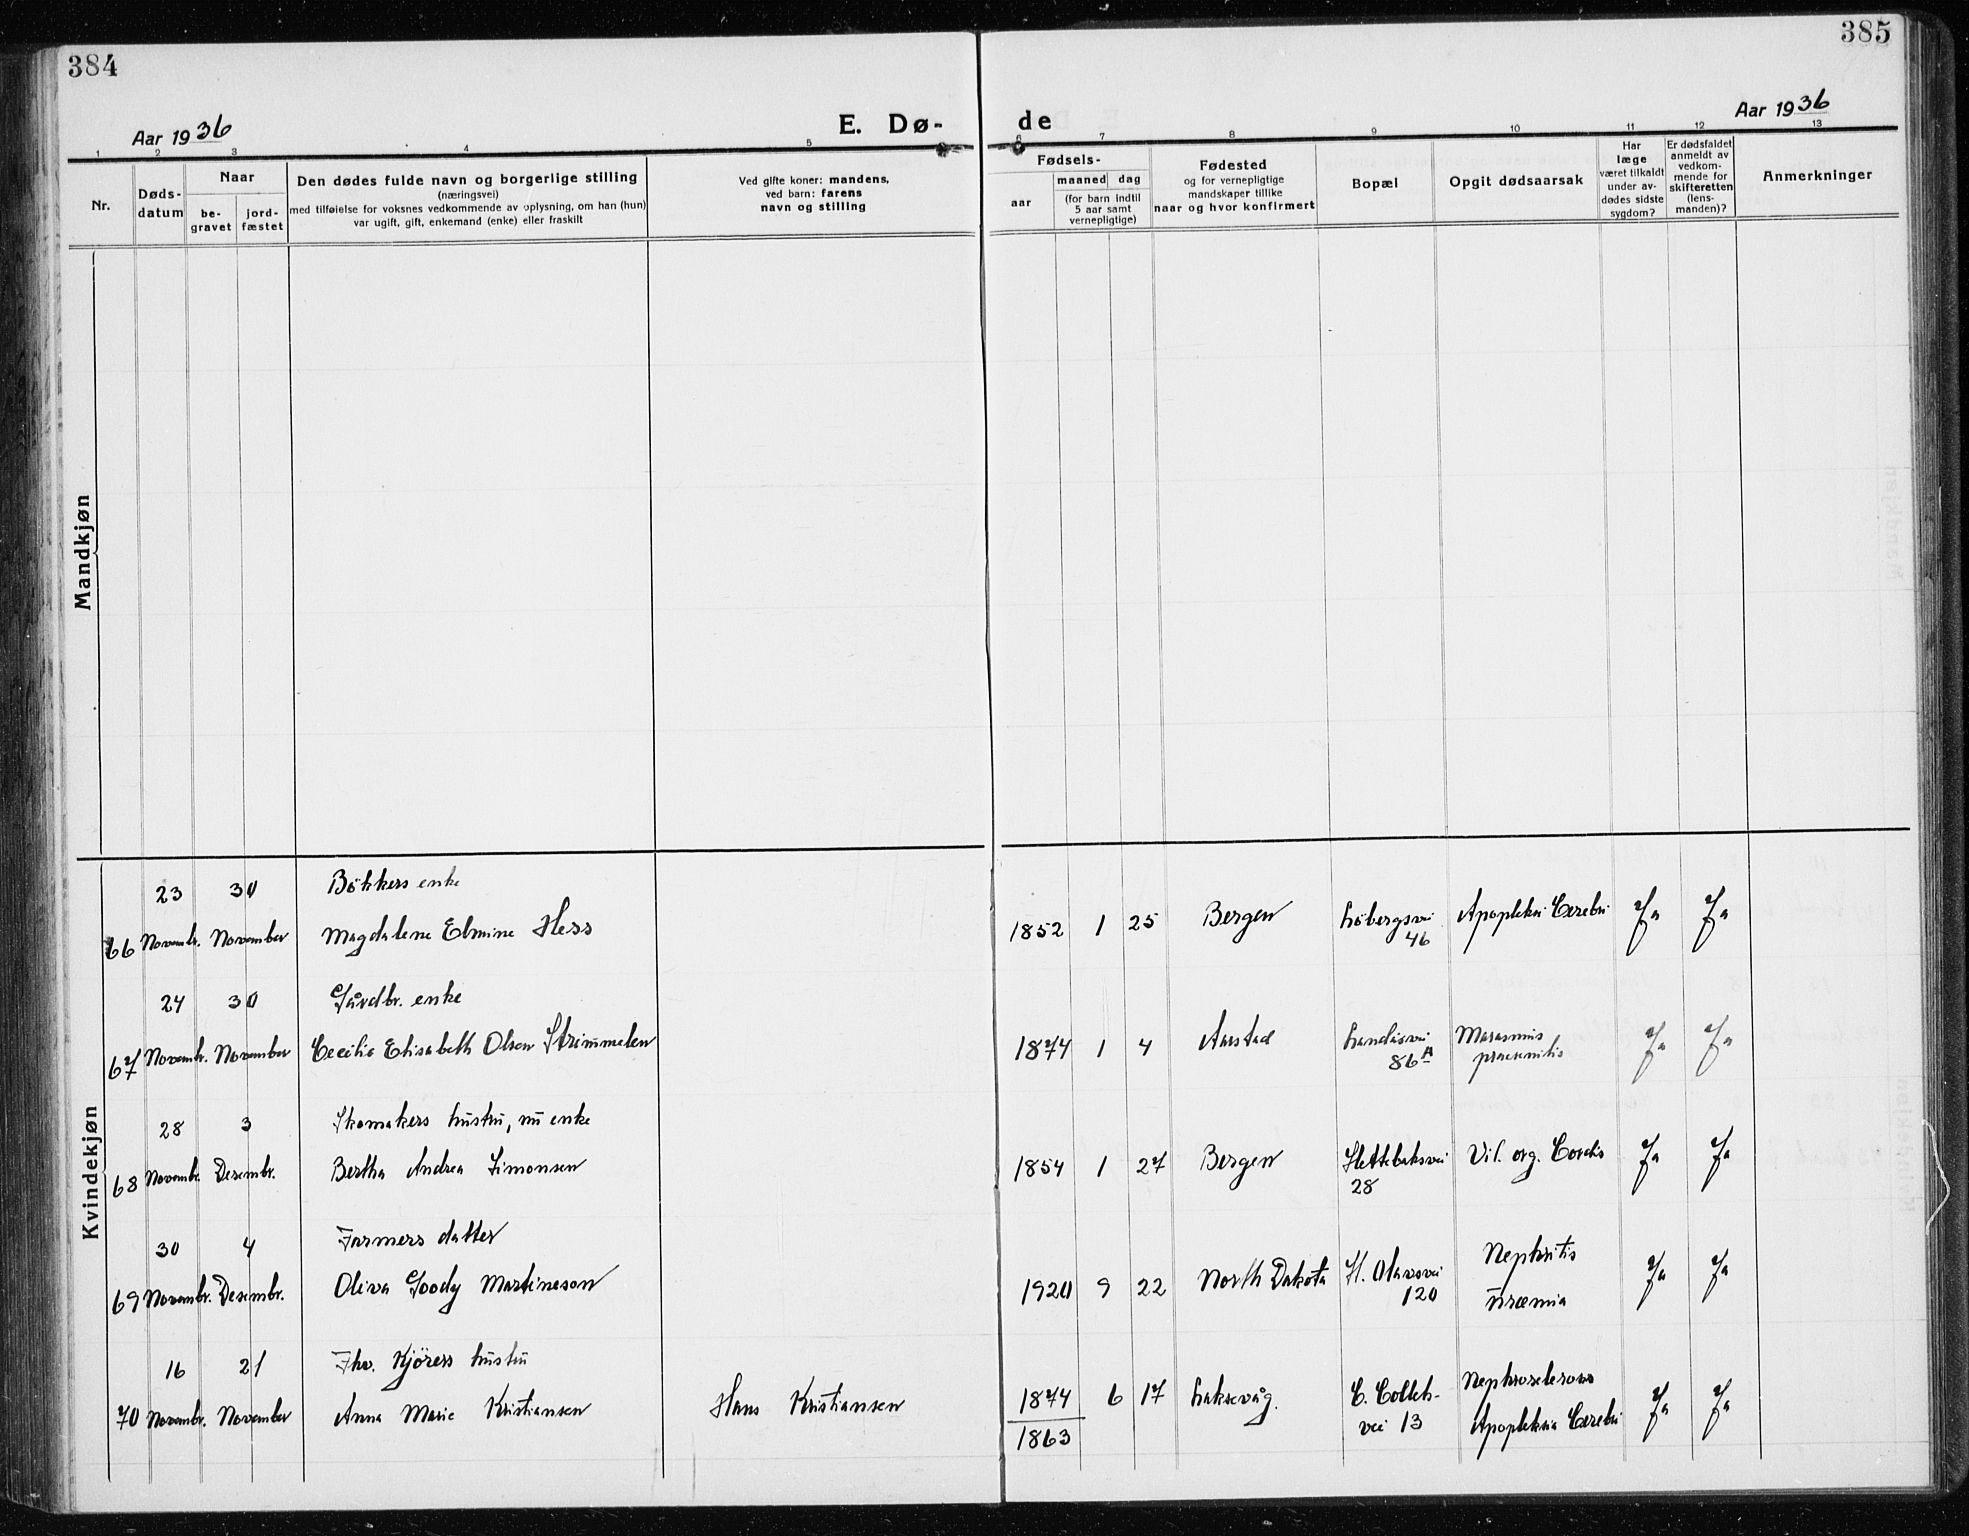 384
385
Aar 1936
E. Dø-
de
Aar 1936
1 2 3 4 5 6 7 8 9 10 11 12 13
Nr.
Døds-
datum
Naar
be-
gravet
jord-
fæstet
Den dødes fulde navn og borgerlige stilling
(næringsvei)
med tilføielse for voksnes vedkommende av oplysning, om han (hun)
var ugift, gift, enkemand (enke) eller fraskilt
Ved gifte koner: mandens,
ved barn: farens
navn og stilling
Fødsels-
aar
maaned dag
(for barn indtil
5 aar samt
vernepligtige)
Fødested
og for vernepligtige
mandskaper tillike
naar og hvor konfirmert
Bopæl
Opgit dødsaarsak
Har
læge
været tilkaldt
under av-
dødes sidste
sygdom?
Er dødsfaldet
anmeldt av
vedkom-
mende for
skifteretten
(lens-
manden)?
Anmerkninger
Mandkjøn
Kvindekjøn
23 30 Bökkers enke
66 Novembr. November Magdalene Elmine Hess 1852 1 25 Bergen Löbergsvei
46
Apopleksi Cerebri Ja Ja
24 30 Gårdbr. enke
67 Novembr. November Cecilie Elisabeth Olsen Strimmelen 1874 1 4 Aarstad Landåsvei
86 A
Marasmus
praesenilis
Ja Ja
28 3 Skomakers hustru, nu enke
68 Novembr. Desembr. Bertha Andrea Simonsen 1854 1 27 Bergen Slettebaksvei
28
Vit. org. Cordis Ja Ja
30 4 Farmers datter
69 Novembr. Desembr. Oliva Goody Martineson 1920 9 22 North Dakota St. Olavsvei
120
Nephritis
Uræmia
Ja Ja
16 21 Fhv. Kjörers hustru
70 Novembr. November Anna Marie Kristiansen Hans Kristiansen 1874 6 17 Laksevåg.
1863
C. Collett-
vei 13
Nephrosclerose
Apopleksia Cerebri
Ja Ja